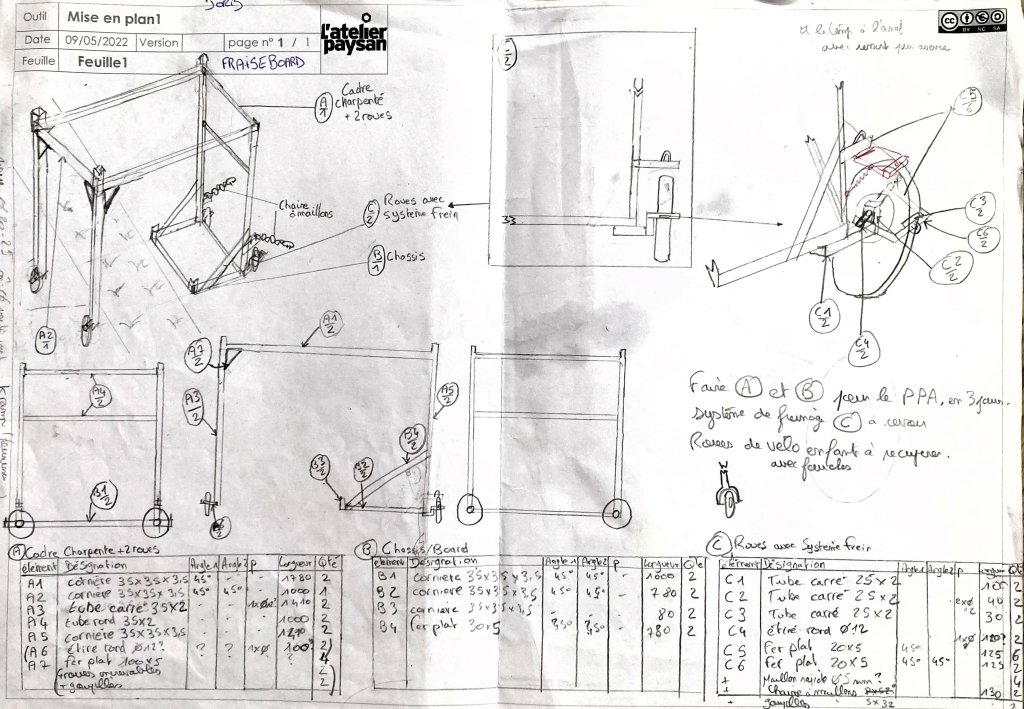 Outil Mise en plan1
Date 09/05/2022 Version page n° 1 / 1
Feuille Feuille1 FRAISEBOARD
L'atelier paysan
CC BY NC SA
A/1 Cadre charpenté + 2 roues
Chaine à maillons
C/2 Roues avec système frein
B/1 Chassis
A2/1
33
C5/6
C3/2
C6/2
C2/2
C1/2
C4/2
A1/2
A7/2
A3/2
A4/2
A5/2
B4/2
B3/2
B2/2
B1/2
Faire A et B pour le PPA, en 3 jours.
système de freinage C à revoir
Roues de vélo enfant à récupérer.
avec fourches
A Cadre Charpente + 2 roues
élément Désignation Angle 1 Angle 2 P Longueur Qté
A1 cornière 35x35x3,5 45° - - 1780 2
A2 cornière 35x35x3,5 45° 45° - 1000 1
A3 tube carré 35x2 - - 1410 2
A4 tube rond 35x2 - - 1000 2
A5 cornière 35x35x3,5 - - 2
(A6 étiré rond Ø12? ? ? 1xØ 100? 2)
A7 Fer plat 100x5 4
+ roues 2
+ goupilles 2
B Chassis/Board
élément Désignation Angle 1 Angle 2 P Longueur Qté
B1 cornière 35x35x3,5 45° 45° - 1000 2
B2 cornière 35x35x3,5 45° 45° - 780 2
B3 cornière 35x35x3,5 - 80 2
B4 fer plat 30x5 - 780 2
C Roues avec Système frein
élément Désignation Angle 1 Angle 2 P Longueur Qté
C1 Tube carré 25x2 100 2
C2 Tube carré 25x2 40 2
C3 Tube carré 25x2 30 2
C4 étiré rond Ø12 1xØ 2
C5 Fer plat 20x5 45° 125 6
C6 Fer plat 20x5 45° 45° 125 2
+ Maillon rapide Ø5 mm?
+ Chaine à maillons 5x32 130 4
+ goupilles 2